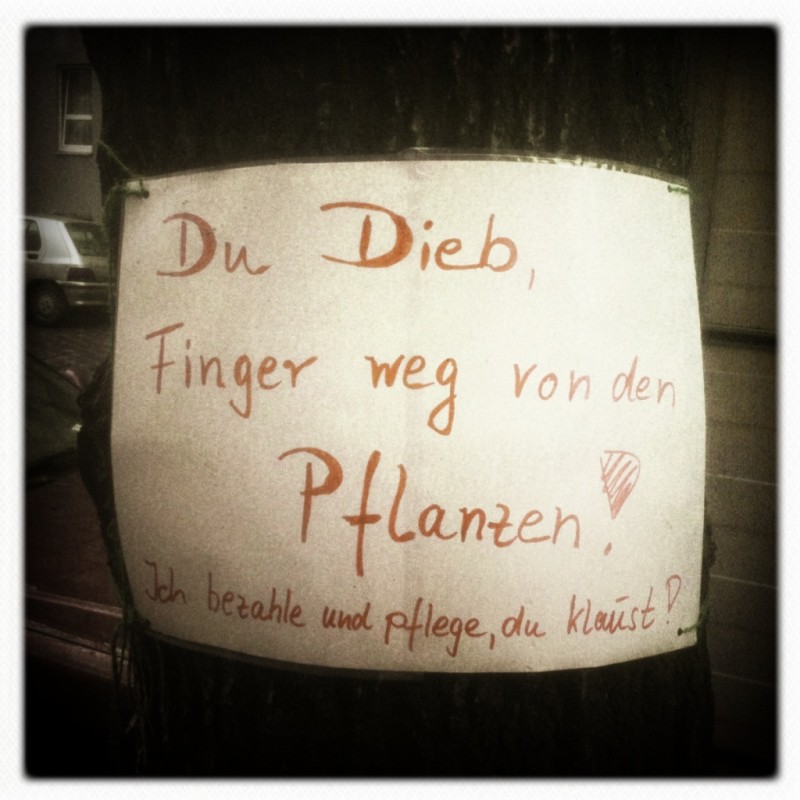 Du Dieb,
Finger weg von den
Pflanzen!
Ich bezahle und pflege, du klaust!